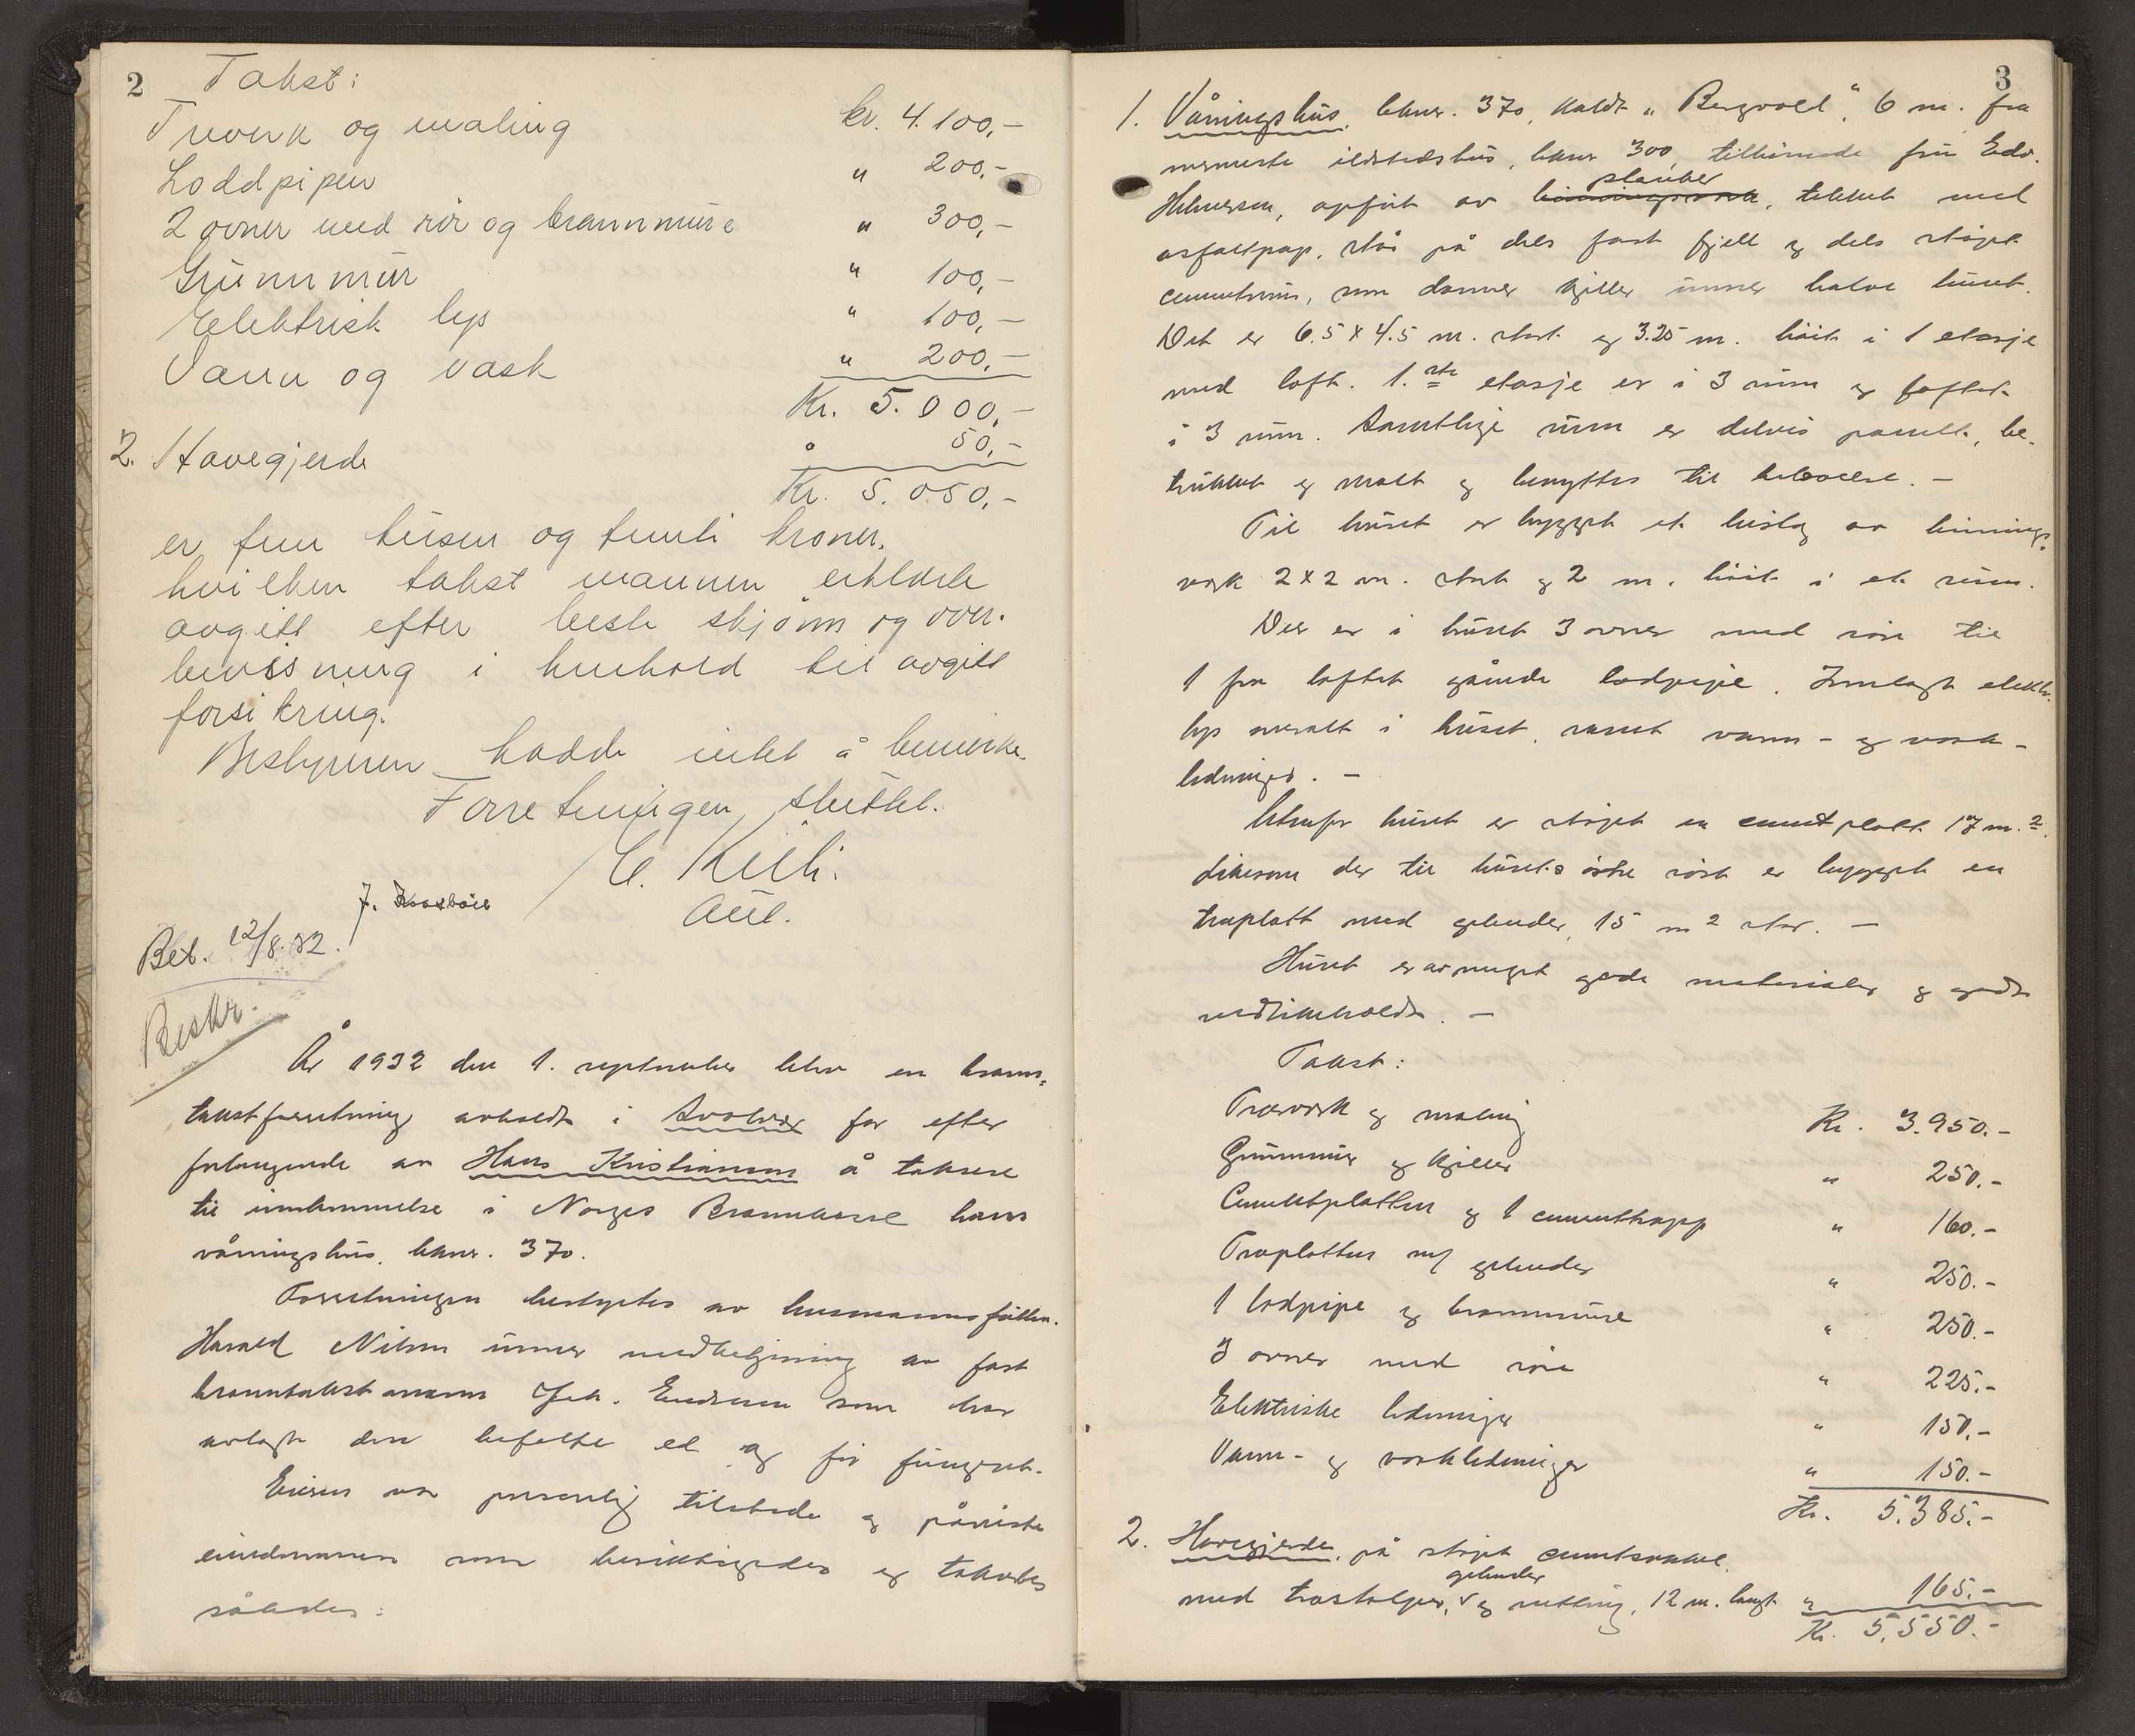 2
Takst:
Treverk og maling kr. 4.100,-
Loddpipen " 200,-
2 ovner med rør og brannmure " 300,-
Grunnmur " 100,-
Elektrisk lys " 100,-
Vann og vask " 200,-
Kr. 5.000,-
2. Havegjerde " 50,-
Kr. 5.050,-
er fem tusen og femti kroner,
hvilken takst mannen erklærte
avgitt efter beste skjønn og over-
bevisning i henhold til avgitt
forsikring.
Bestyreren hadde intet å bemerke.
Forretningen sluttet.
C. Kiili.
Aut.
Bet. 12/8.32.
Beskr.
År 1932 den 1. september blev en brann-
takstforretning avholdt i Svolvær for efter
forlangende av Hans Kristiansen å taksere
til innlemmelse i Norges Brannkasse hans
våningshus, bknr. 370.
Forretningen bestyrtes av lensmannsfullm.
Harald Nilsen under medbetjening av fast
branntakstmann Joh. Endresen som har
avlagt den befalte ed og før fungert.
Eieren var personlig tilstede og påviste
eiendommen som besiktigedes og taksertes
således:
3
1. Våningshus, bknr. 370, kaldt "Bergvoll", 6 m. fra
nærmeste ildstedshus, bknr 300, tilhørende fru Edv.
Halvorsen, opført av bindingsverk stender, tekket med
asfaltpap, står på dels fast fjell og dels støpt
cementmur, som danner kjeller under halve huset.
Det er 6.5 x 4.5 m. stort og 3.25 m. høit i 1 etasje
med loft. 1.ste etasje er i 3 rum og loftet
i 3 rum. Samtlige rum er delvis panelt, be-
trukket og malt og benyttes til beboelse. -
Til huset er bygget et bislag av bindings-
verk 2x2 m. stort og 2 m. høit i et rum.
Der er i huset 3 ovner med rør til
1 fra loftet gående lodpipe. Innlagt elektr.
lys overalt i huset, samt vann- og vask-
ledninger. -
Utenfor huset er støpt en cementplatt 17 m.2,
likesom der til husets østre røst er bygget en
treplatt med gelender, 15 m2 stor. -
Huset er av meget gode materialer og godt
vedlikeholdt. -
Takst:
Treverk og maling Kr. 3.950.-
Grunnmur og kjeller " 250.-
Cementplatten og 1 cementtrapp " 160.-
Treplatten m/ gelender " 250.-
1 lodpipe og brannmure " 250.-
3 ovner med rør " 225.-
Elektriske ledninger " 150.-
Vann- og vaskledninger " 150.-
Kr. 5.385.-
2. Havegjerde, på støpt cementsokkel,
med trestolper, gelender og netting, 12 m. langt " 165.-
Kr. 5.550.-